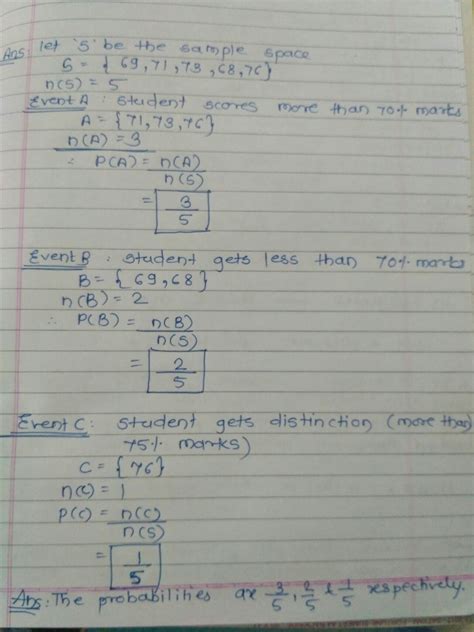 Ans: let 'S' be the sample space
S = { 69, 71, 73, 68, 76}
n(S) = 5
Event A : student scores more than 70% marks
A = {71, 73, 76}
n(A) = 3
∴ P(A) = n(A)/n(S)
= 3/5
Event B : student gets less than 70% marks
B = { 69, 68}
n(B) = 2
∴ P(B) = n(B)/n(S)
= 2/5
Event C: student gets distinction (more than
75% marks)
C = {76}
n(C) = 1
P(C) = n(C)/n(S)
= 1/5
Ans: The probabilities are 3/5, 2/5 & 1/5 respectively.